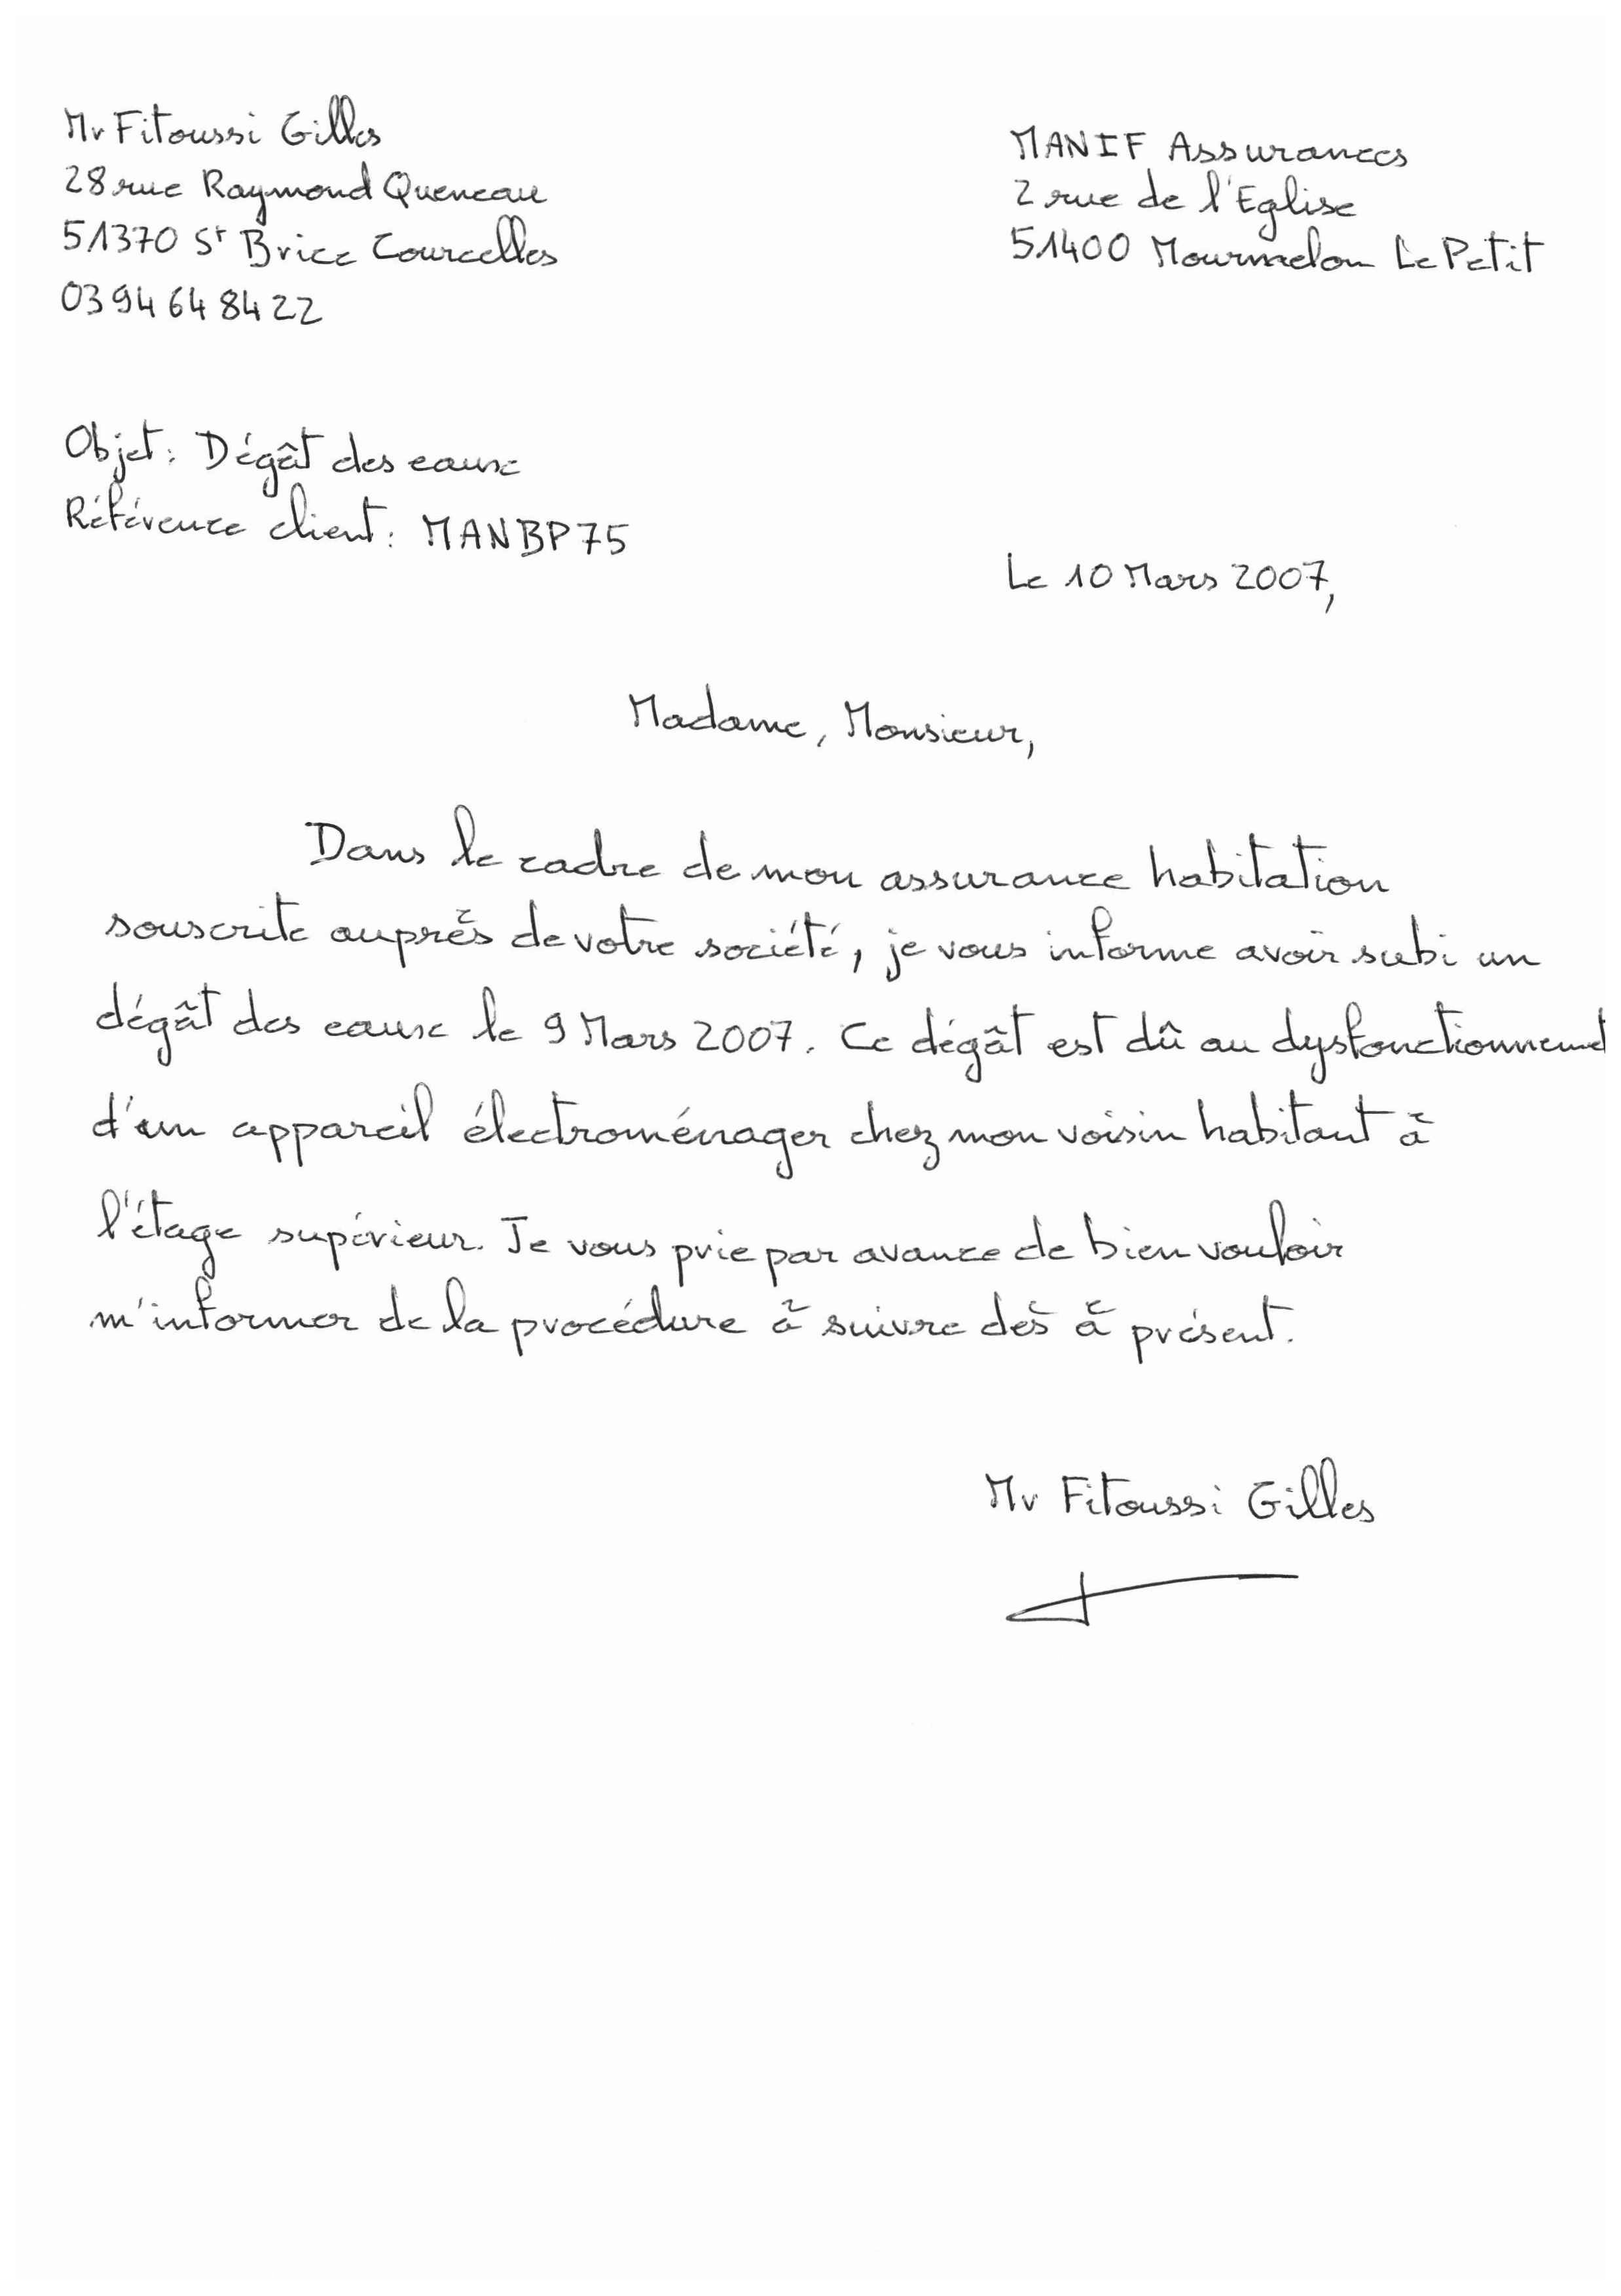 Mr Fitoussi Gilles
28 rue Raymond Queneau
51370 St Brice Courcelles
03 94 64 84 22
MANIF Assurances
2 rue de l'Eglise
51400 Mourmelon Le Petit
Objet : Dégât des eaux
Référence client : MANBP75
Le 10 Mars 2007,
Madame, Monsieur,
Dans le cadre de mon assurance habitation
souscrite auprès de votre société, je vous informe avoir subi un
dégât des eaux le 9 Mars 2007. Ce dégât est dû au dysfonctionnement
d'un appareil électroménager chez mon voisin habitant à
l'étage supérieur. Je vous prie par avance de bien vouloir
m'informer de la procédure à suivre dès à présent.
Mr Fitoussi Gilles